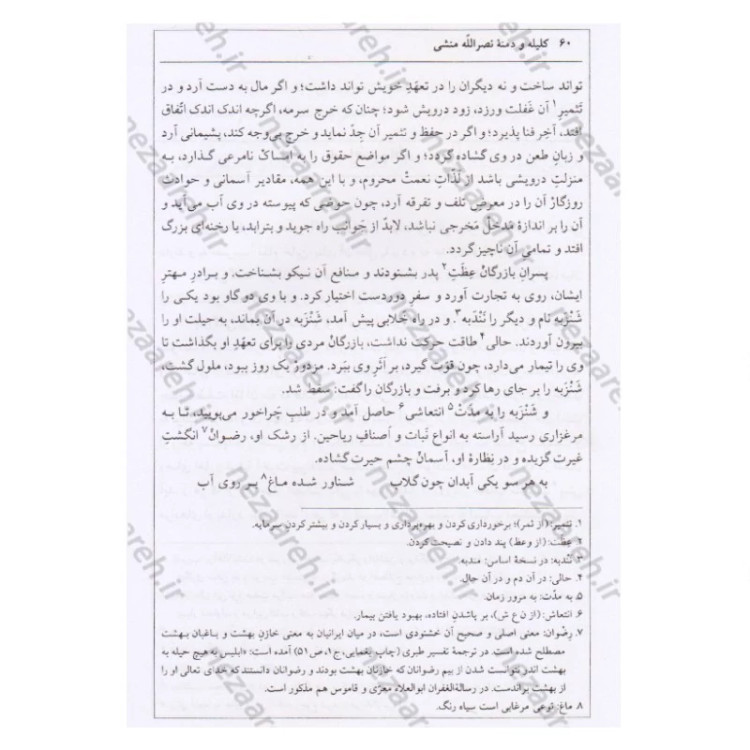 ۶۰ کلیله و دمنهٔ نصراللّه منشی
تواند ساخت و نه دیگران را در تعهّدِ خویش تواند داشت؛ و اگر مال به دست آرد و در
تَثمیرِ۱ آن غَفلت ورزد، زود درویش شود؛ چنان که خرج سرمه، اگرچه اندک اندک اتّفاق
افتد، آخر فنا پذیرد؛ و اگر در حفظ و تثمیر آن جِدّ نماید و خرج بی‌وجه کند، پشیمانی آرد
و زبانِ طعن در وی گشاده گردد؛ و اگر مواضع حقوق را به امساک نامرعی گذارد، به
منزلتِ درویشی باشد از لَذّاتِ نعمت محروم، و با این همه، مقادیر آسمانی و حوادث
روزگار آن را در معرض تلف و تفرقه آرد، چون حوضی که پیوسته در وی آب می‌آید و
آن را بر اندازهٔ مَدخَل مَخرجی نباشد، لابدّ از جوانب راه جوید و بترابد، یا رخنه‌ای بزرگ
افتد و تمامی آن ناچیز گردد.
پسران بازرگان عِظَتِ۲ پدر بشنودند و منافع آن نیکو بشناخت، و برادرِ مهتر
ایشان، روی به تجارت آورد و سفرِ دوردست اختیار کرد. و با وی دو گاو بود یکی را
شَنْزَبه نام و دیگر را نَنْدَبه۳. و در راه خَلابی پیش آمد، شَنْزَبه در آن بماند، به حیلت او را
بیرون آوردند. حالی۴ طاقت حرکت نداشت، بازرگان مردی را برای تعهّدِ او بگذاشت تا
وی را تیمار می‌دارد، چون قوّت گیرد، بر اَثَرِ وی ببَرد. مزدور یک روز ببود، ملول گشت،
شَنْزَبه را بر جای رها کرد و برفت و بازرگان را گفت: سقط شد.
و شَنْزَبه را به مدّت۵ انتعاشی۶ حاصل آمد و در طلبِ چَراخور می‌پویید، تا به
مرغزاری رسید آراسته به انواع نَبات و اَصنافِ ریاحین. از رشک او، رضوان۷ انگشتِ
غیرت گزیده و در نِظارهٔ او، آسمان چشم حیرت گشاده.
به هر سو یکی آبدان چون گلاب شناور شده ماغ۸ بر روی آب
۱. تثمیر: (از ثمر)؛ برخورداری کردن و بهره‌برداری و بسیار کردن و بیشتر کردن سرمایه.
۲. عِظَت: (از وعظ) پند دادن و نصیحت کردن.
۳. نَنْدَبه: در نسخهٔ اساس: مندبه.
۴. حالی: در آن دم و در آن حال.
۵. به مدّت: به مرور زمان.
۶. انتعاش: (از ن ع ش)، بر پا شدنِ افتاده، بهبود یافتن بیمار.
۷. رِضْوان: معنی اصلی و صحیح آن خشنودی است، در میان ایرانیان به معنی خازن بهشت و باغبان بهشت
مصطلح شده است. در ترجمهٔ تفسیر طبری (چاپ یغمایی، ج۱، ص۵۱) آمده است: «ابلیس به هیچ حیله به
بهشت اندر نتوانست شدن از بیم رضوانان که خازنان بهشت بودند و رضوانان دانستند که خدای تعالی او را
از بهشت براندست. در رسالةالغفران ابوالعلاء معرّی و قاموس هم مذکور است.
۸. ماغ: نوعی مرغابی است سیاه رنگ.
nezaareh.ir